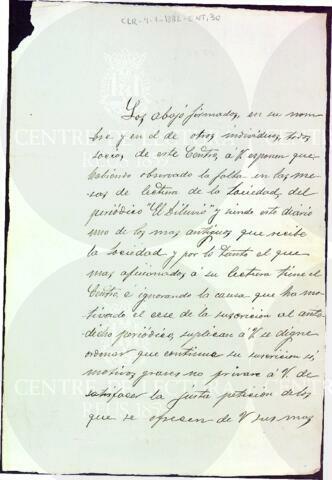 CLR-4-1-1882-ENT,30
Los abajo firmados, en su nom-
bre y en el de otros individuos, todos
socios de este Centro, á V. esponen que
habiendo observado la falta en las me-
sas de lectura de la Sociedad, del
periódico "El Diluvio" y siendo este diario
uno de los mas antiguos que recibe
la Sociedad y por lo tanto el que
mas aficionados á su lectura tiene el
Centro, é ignorando la causa que ha mo-
tivado el cese de la suscricion al ante-
dicho periódico, suplican á V. se digne
ordenar que continue su suscricion si
motivos graves no privare á V. de
satisfacer la justa peticion de los
que se ofrecen de V. sus mas
CENTRE DE LECTURA
REUS 1859